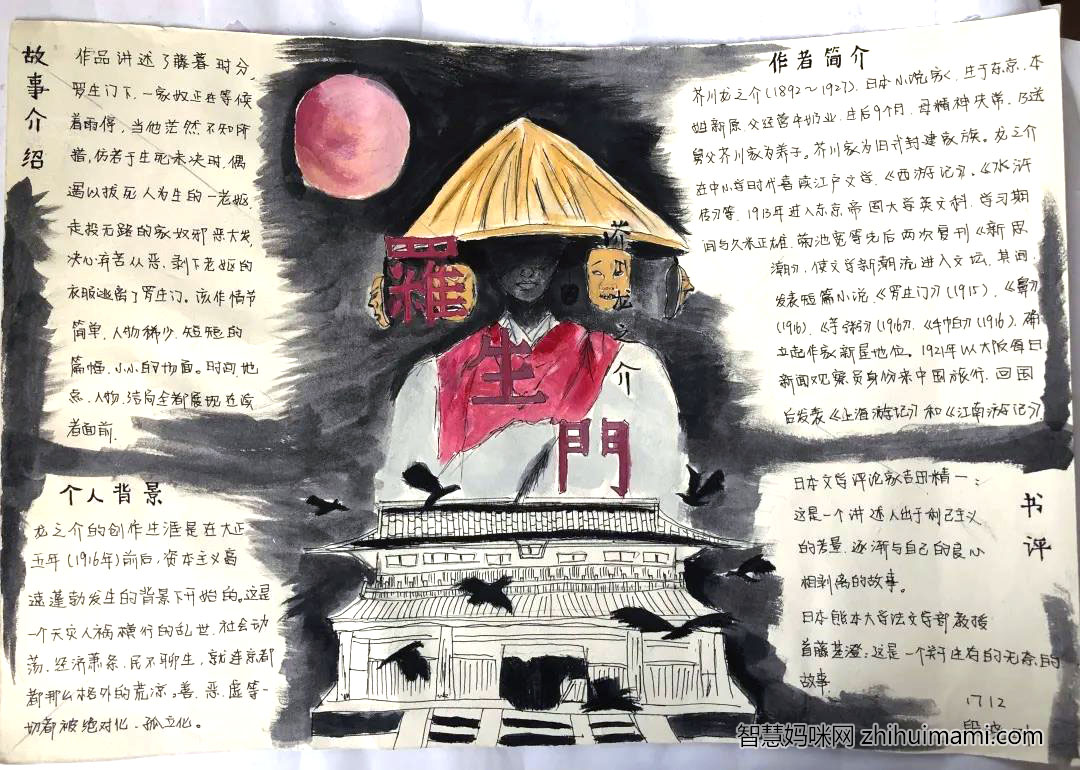 故事介绍
作品讲述了藤暮时分,
罗生门下,一家奴正在等候
着雨停,当他茫然不知所
措,仿若于生死未决时,偶
遇以拔死人为生的一老妪,
走投无路的家奴邪恶大发,
决心弃苦从恶,剥下老妪的
衣服逃离了罗生门。该作情节
简单,人物稀少,短短的
篇幅,小小的场面。时间,地
点,人物,结局全都展现在读
者面前.
个人背景
龙之介的创作生涯是在大正
五年(1916年)前后,资本主义高
速蓬勃发生的背景下开始的。这是
一个天灾人祸横行的乱世,社会动
荡,经济萧条,民不聊生,就连京都
都那么格外的荒凉。善、恶、虚等一
切都被绝对化、孤立化。
羅生門
芥川龙之介
作者简介
芥川龙之介(1892~1927),日本小说家,生于东京,本
姓新原,父经营牛奶业,生后9个月,母精神失常,乃送
舅父芥川家为养子。芥川家为旧式封建家族。龙之介
在中小学时代喜读江户文学,《西游记》,《水浒
传》等,1913年进入东京帝国大学英文科,学习期
间与久米正雄,菊池宽等先后两次复刊《新思
潮》,使文学新潮流进入文坛,其间,
发表短篇小说《罗生门》(1915),《鼻》
(196),《芋粥》(196),《手帕》(196),确
立起作家新星地位。1921年以大阪每日
新闻观察员身份来中国旅行,回国
后发表《上海游记》和《江南游记》
书评
日本文学评论家吉田精一:
这是一个讲述人出于利己主义
的考量,逐渐与自己的良心
相剥离的故事。
日本熊本大学法文学部教授
首藤基澄:这是一个关于生存的无奈的
故事
1712
智慧妈咪网 zhihuimami.com